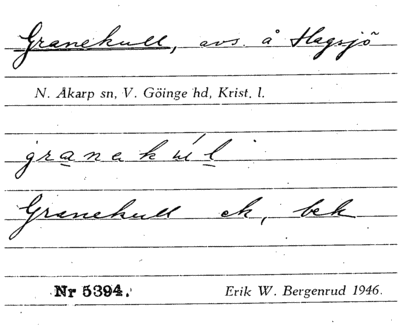 Granekull, avs. å Hagsjö
N. Åkarp sn, V. Göinge hd, Krist. l.
Granekull ek, bek
Nr 5394.
Erik W. Bergenrud 1946.